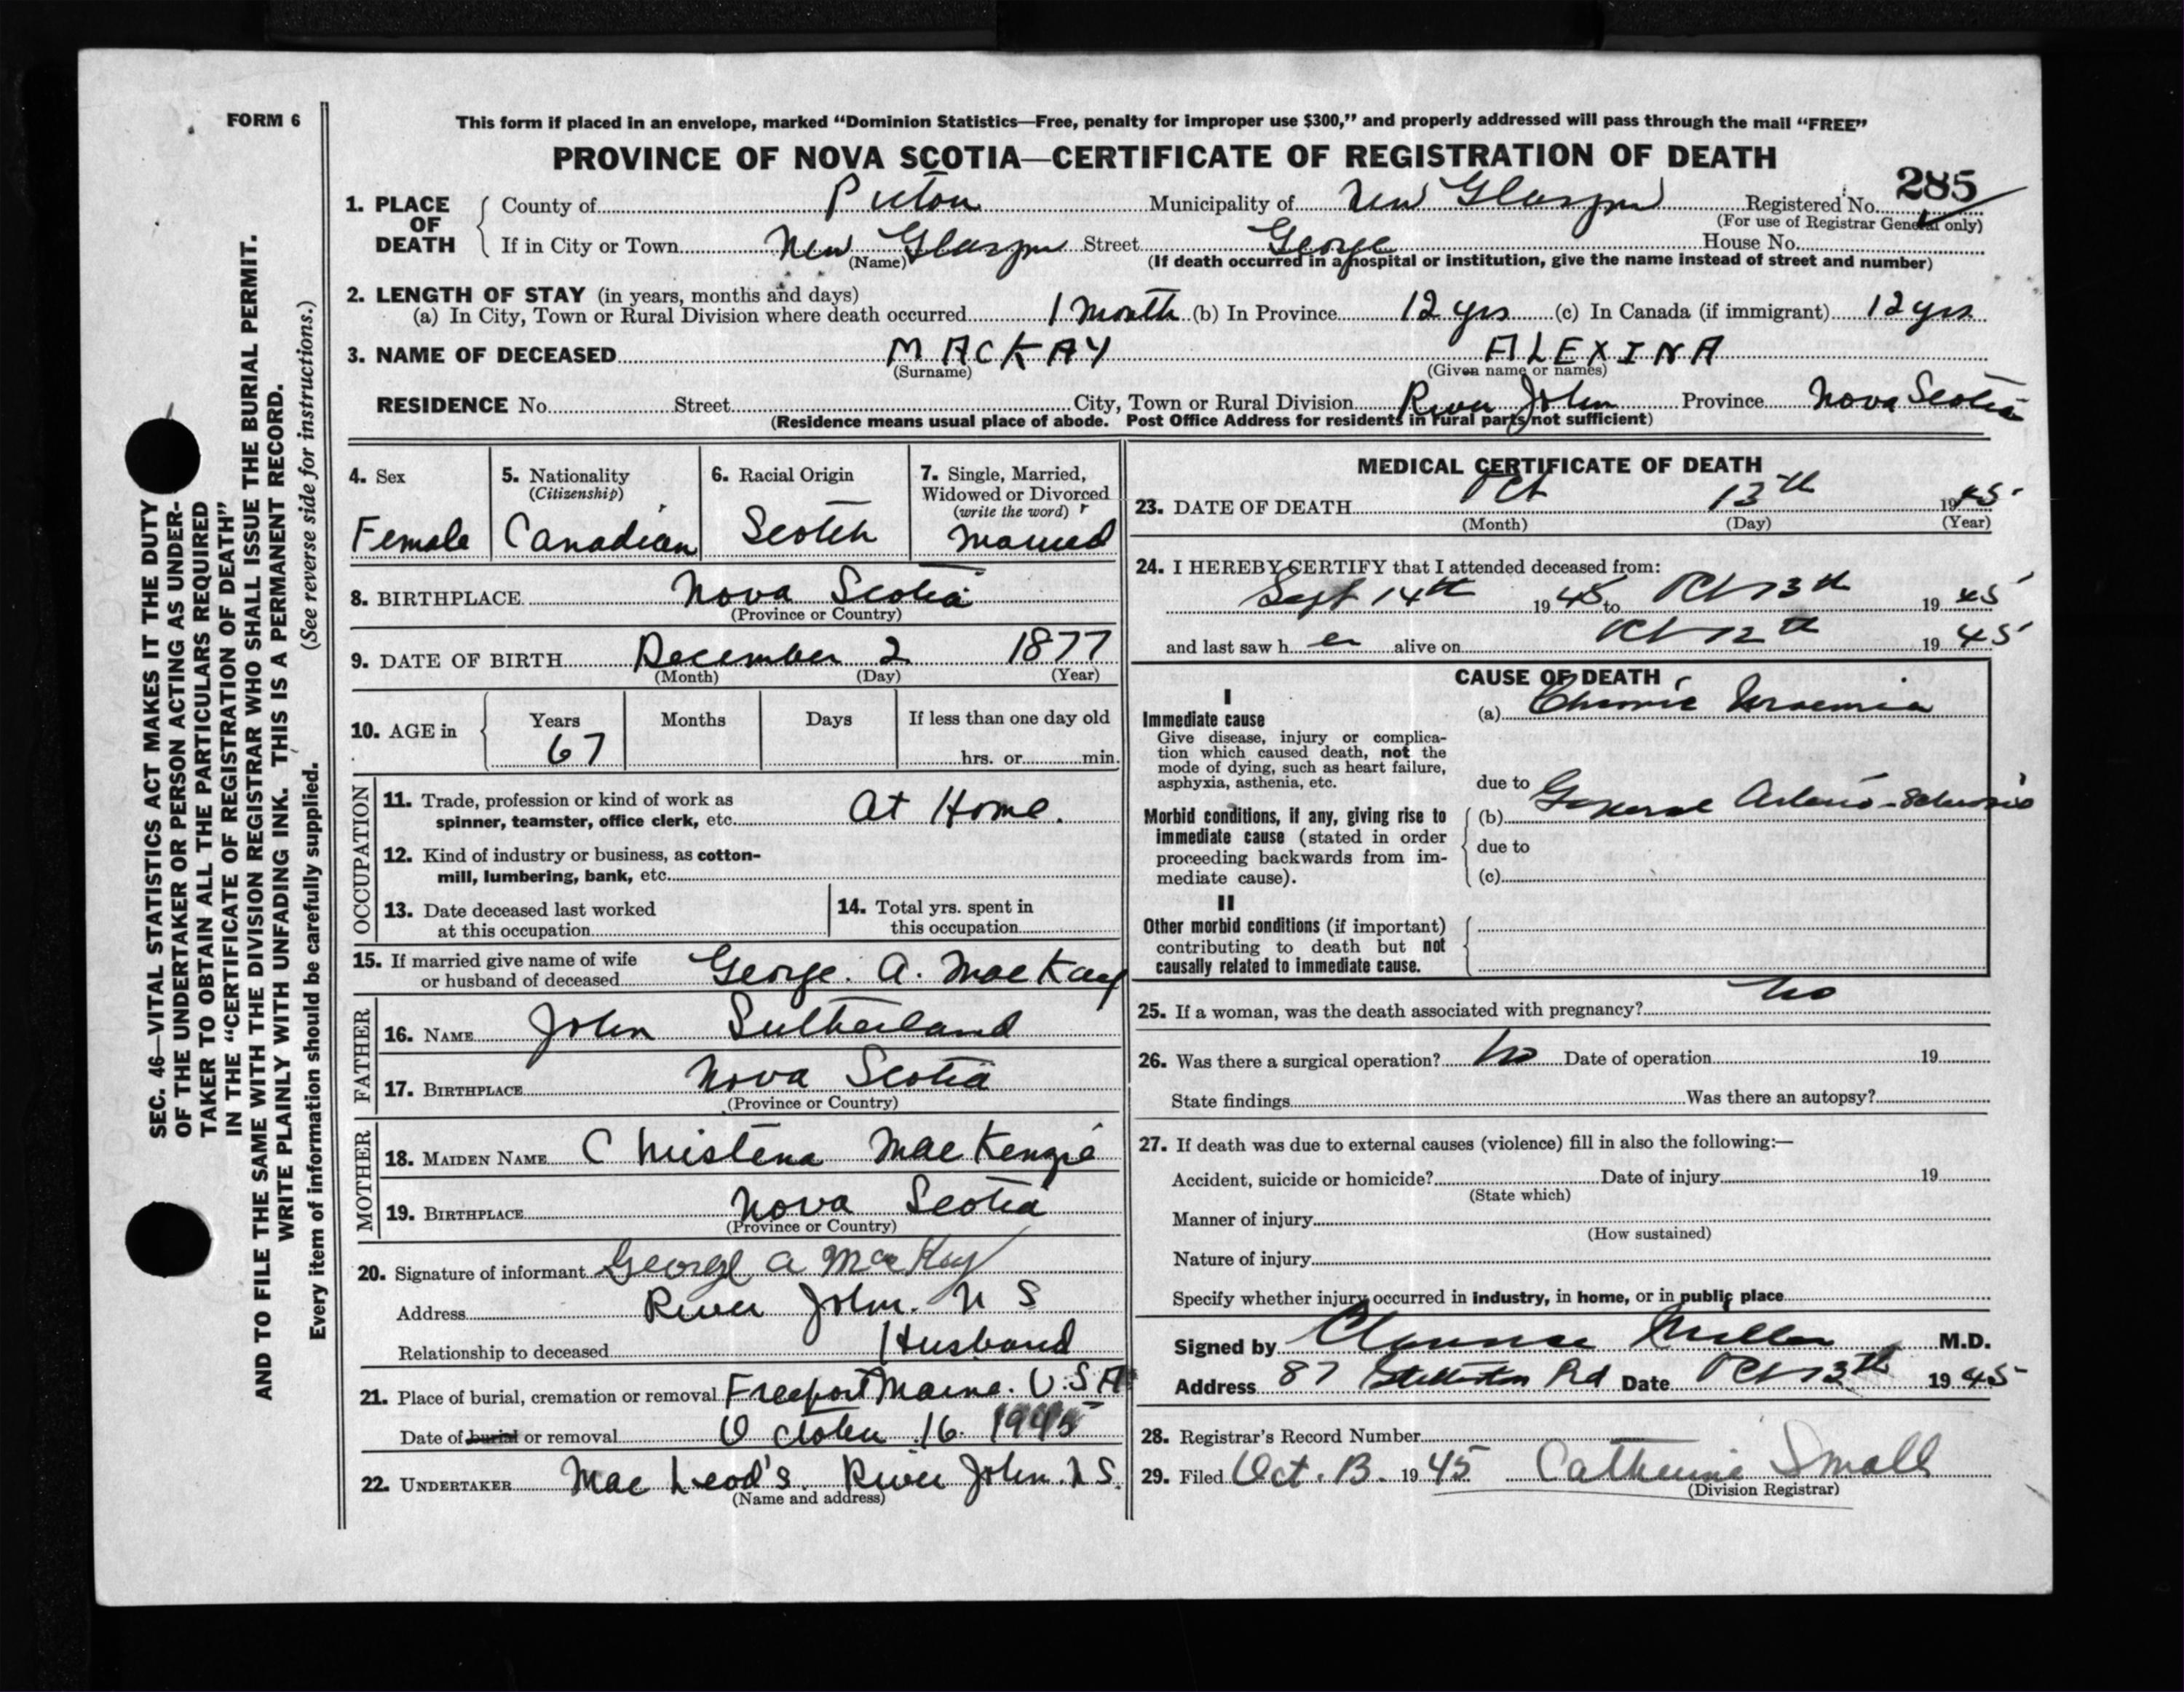 FORM 6
This form if placed in an envelope, marked “Dominion Statistics—Free, penalty for improper use $300,” and properly addressed will pass through the mail “FREE”
PROVINCE OF NOVA SCOTIA—CERTIFICATE OF REGISTRATION OF DEATH
285
1. PLACE OF DEATH
County of Pictou Municipality of New Glasgow Registered No.
(For use of Registrar General only)
If in City or Town New Glasgow Street George House No.
(Name) (If death occurred in a hospital or institution, give the name instead of street and number)
2. LENGTH OF STAY (in years, months and days)
(a) In City, Town or Rural Division where death occurred 1 Month (b) In Province 12 yrs (c) In Canada (if immigrant) 12 yrs
3. NAME OF DECEASED MACKAY ALEXINA
(Surname) (Given name or names)
RESIDENCE No. Street City, Town or Rural Division River John Province Nova Scotia
(Residence means usual place of abode. Post Office Address for residents in rural parts not sufficient)
SEC. 46—VITAL STATISTICS ACT MAKES IT THE DUTY
OF THE UNDERTAKER OR PERSON ACTING AS UNDER-
TAKER TO OBTAIN ALL THE PARTICULARS REQUIRED
IN THE “CERTIFICATE OF REGISTRATION OF DEATH”
AND TO FILE THE SAME WITH THE DIVISION REGISTRAR WHO SHALL ISSUE THE BURIAL PERMIT.
WRITE PLAINLY WITH UNFADING INK. THIS IS A PERMANENT RECORD.
Every item of information should be carefully supplied. (See reverse side for instructions.)
4. Sex
Female
5. Nationality
(Citizenship)
Canadian
6. Racial Origin
Scotch
7. Single, Married,
Widowed or Divorced
(write the word)
Married
8. BIRTHPLACE Nova Scotia
(Province or Country)
9. DATE OF BIRTH December 2 1877
(Month) (Day) (Year)
10. AGE in
Years Months Days If less than one day old
67 hrs. or min.
OCCUPATION
11. Trade, profession or kind of work as
spinner, teamster, office clerk, etc. At Home.
12. Kind of industry or business, as cotton-
mill, lumbering, bank, etc.
13. Date deceased last worked
at this occupation
14. Total yrs. spent in
this occupation
15. If married give name of wife
or husband of deceased George. A. MacKay
FATHER
16. NAME John Sutherland
17. BIRTHPLACE Nova Scotia
(Province or Country)
MOTHER
18. MAIDEN NAME Christena MacKenzie
19. BIRTHPLACE Nova Scotia
(Province or Country)
20. Signature of informant George A MacKay
Address River John. N S
Relationship to deceased Husband
21. Place of burial, cremation or removal Freeport Maine. U.S.A
Date of burial or removal October 16. 1945
22. UNDERTAKER Mac Leod's. River John. N S.
(Name and address)
MEDICAL CERTIFICATE OF DEATH
23. DATE OF DEATH Oct 13th 1945
(Month) (Day) (Year)
24. I HEREBY CERTIFY that I attended deceased from:
Sept 14th 1945 to Oct 13th 1945
and last saw her alive on Oct 12th 1945
CAUSE OF DEATH
I
Immediate cause
Give disease, injury or complica-
tion which caused death, not the
mode of dying, such as heart failure,
asphyxia, asthenia, etc.
(a) Chronic Uraemia
due to
Morbid conditions, if any, giving rise to
immediate cause (stated in order
proceeding backwards from im-
mediate cause).
(b) General Arterio-Sclerosis
due to
(c)
II
Other morbid conditions (if important)
contributing to death but not
causally related to immediate cause.
25. If a woman, was the death associated with pregnancy? No
26. Was there a surgical operation? No Date of operation 19
State findings Was there an autopsy?
27. If death was due to external causes (violence) fill in also the following:—
Accident, suicide or homicide? Date of injury 19
(State which)
Manner of injury
(How sustained)
Nature of injury
Specify whether injury occurred in industry, in home, or in public place
Signed by Clarence Miller M.D.
Address 87 Stellarton Rd Date Oct 13th 1945
28. Registrar's Record Number
29. Filed Oct. 13. 1945 Catherine Small
(Division Registrar)